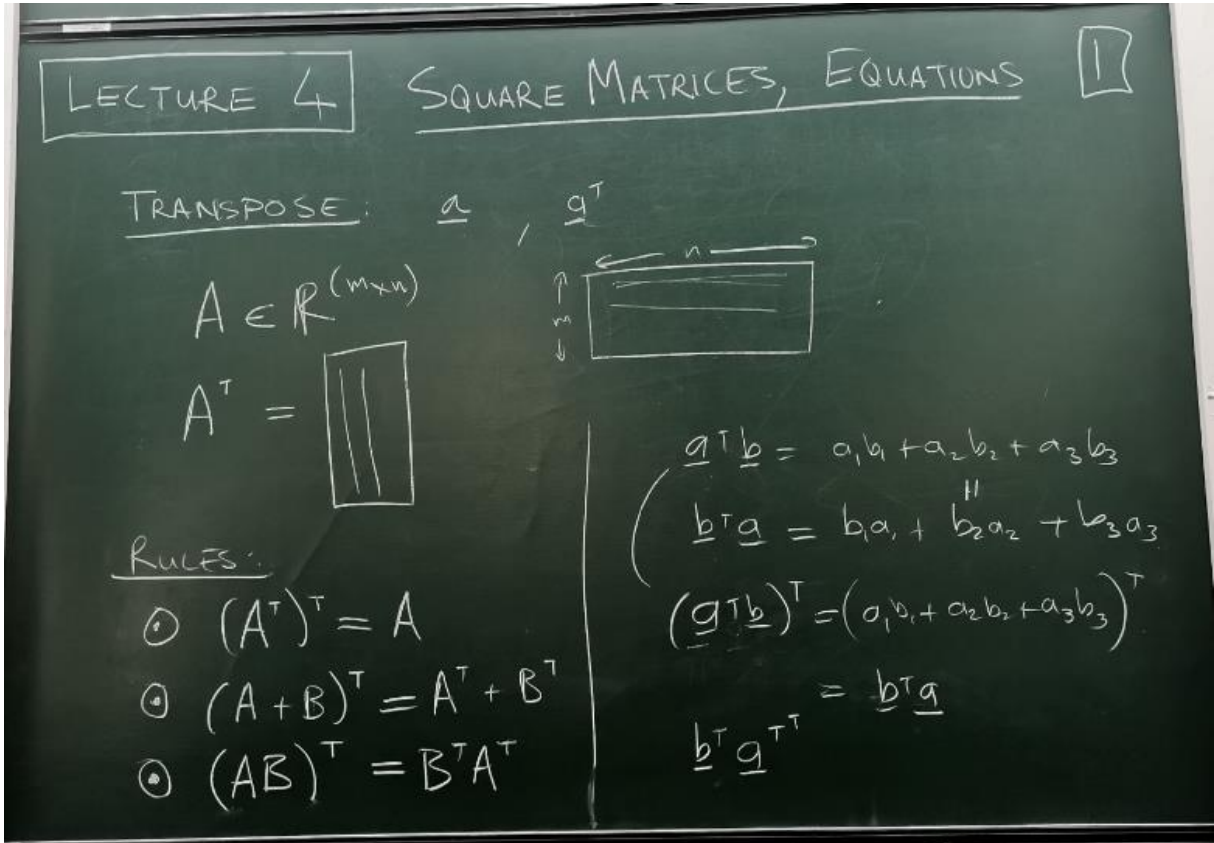 LECTURE 4 SQUARE MATRICES, EQUATIONS 1
TRANSPOSE: a , aᵀ
n
m
A ∈ ℝ^(m×n)
Aᵀ =
RULES:
⊙ (Aᵀ)ᵀ = A
⊙ (A + B)ᵀ = Aᵀ + Bᵀ
⊙ (AB)ᵀ = BᵀAᵀ
aᵀb = a₁b₁ + a₂b₂ + a₃b₃
=
bᵀa = b₁a₁ + b₂a₂ + b₃a₃
(aᵀb)ᵀ = (a₁b₁ + a₂b₂ + a₃b₃)ᵀ
= bᵀa
bᵀ aᵀᵀ